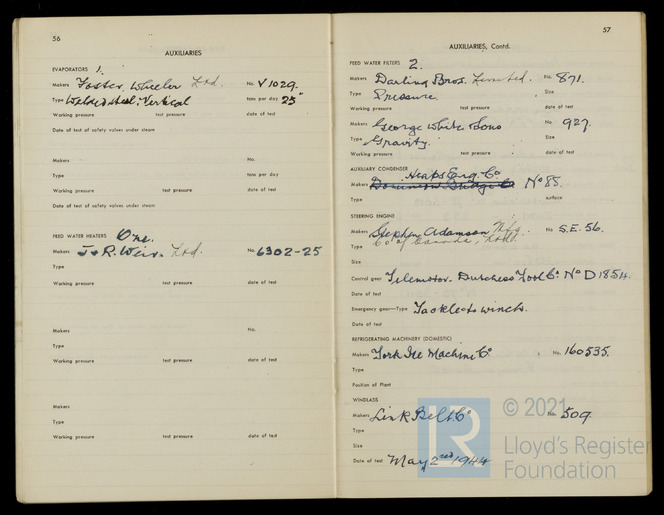 56
AUXILIARIES
EVAPORATORS 1.
Makers Foster Wheeler Ltd. No. V1029.
Type Welded steel: Vertical tons per day 25
Working pressure test pressure date of test
Date of test of safety valves under steam
Makers No.
Type tons per day
Working pressure test pressure date of test
Date of test of safety valves under steam
FEED WATER HEATERS One.
Makers J & R. Weir. Ltd. No. 6302-25
Type
Working pressure test pressure date of test
Makers No.
Type
Working pressure test pressure date of test
Makers
Type
Working pressure test pressure date of test
57
AUXILIARIES, Contd.
FEED WATER FILTERS 2.
Makers Darling Bros. Limited. No. 871.
Type Pressure. Size
Working pressure test pressure date of test
Makers George White & Sons No. 927.
Type Gravity. Size
Working pressure test pressure date of test
AUXILIARY CONDENSER Heaps Eng. Co
Makers Dominion Bridge Co No 85.
Type surface
STEERING ENGINE
Makers Stephen Adamson Mfg No S.E. 56.
Type Co of Canada, Ltd.
Size
Control gear Telemotor. Dutchess Tool Co. No D1854.
Date of test
Emergency gear—Type Tackle to winch.
Date of test
REFRIGERATING MACHINERY (DOMESTIC)
Makers York Ice Machine Co No. 160535.
Type
Position of Plant
WINDLASS
Makers Link Belt Co No. 509
Type
Size
Date of test May 2nd 1944
LR
© 2021
Lloyd's Register
Foundation